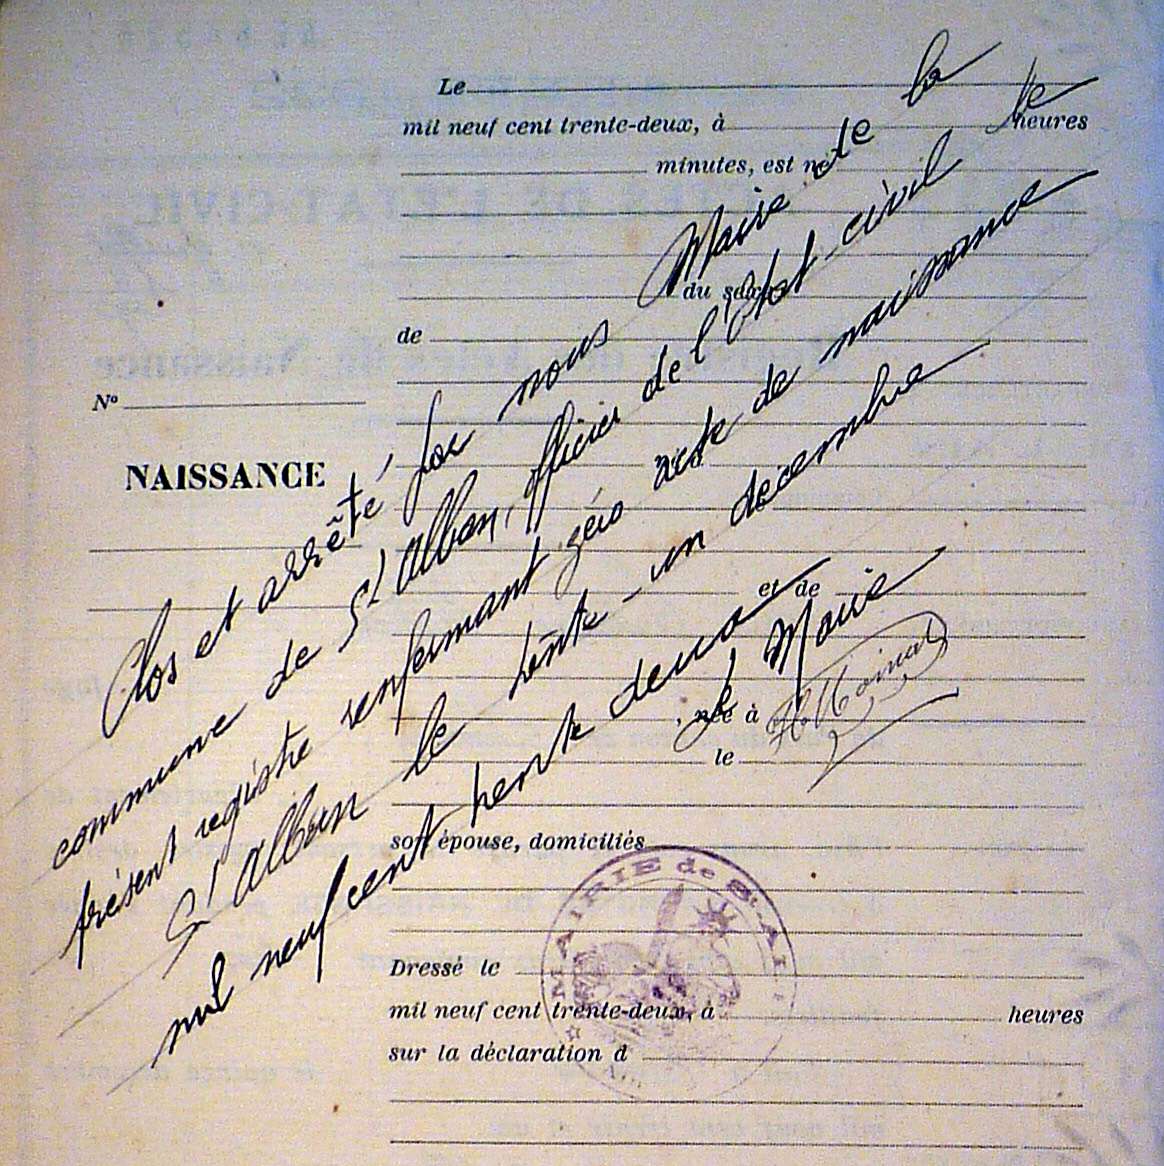 Le
mil neuf cent trente-deux, à heures
minutes, est né
du sexe
de
N°
NAISSANCE
et de
, née à
le
son épouse, domiciliés
Dressé le
mil neuf cent trente-deux, à heures
sur la déclaration d
Clos et arrêté par nous Maire de la
commune de St Alban, officier de l'Etat civil, le
présent registre renfermant zéro acte de naissance
St Alban le trente-un décembre
mil neuf cent trente deux
Le Maire
MAIRIE de St-AL